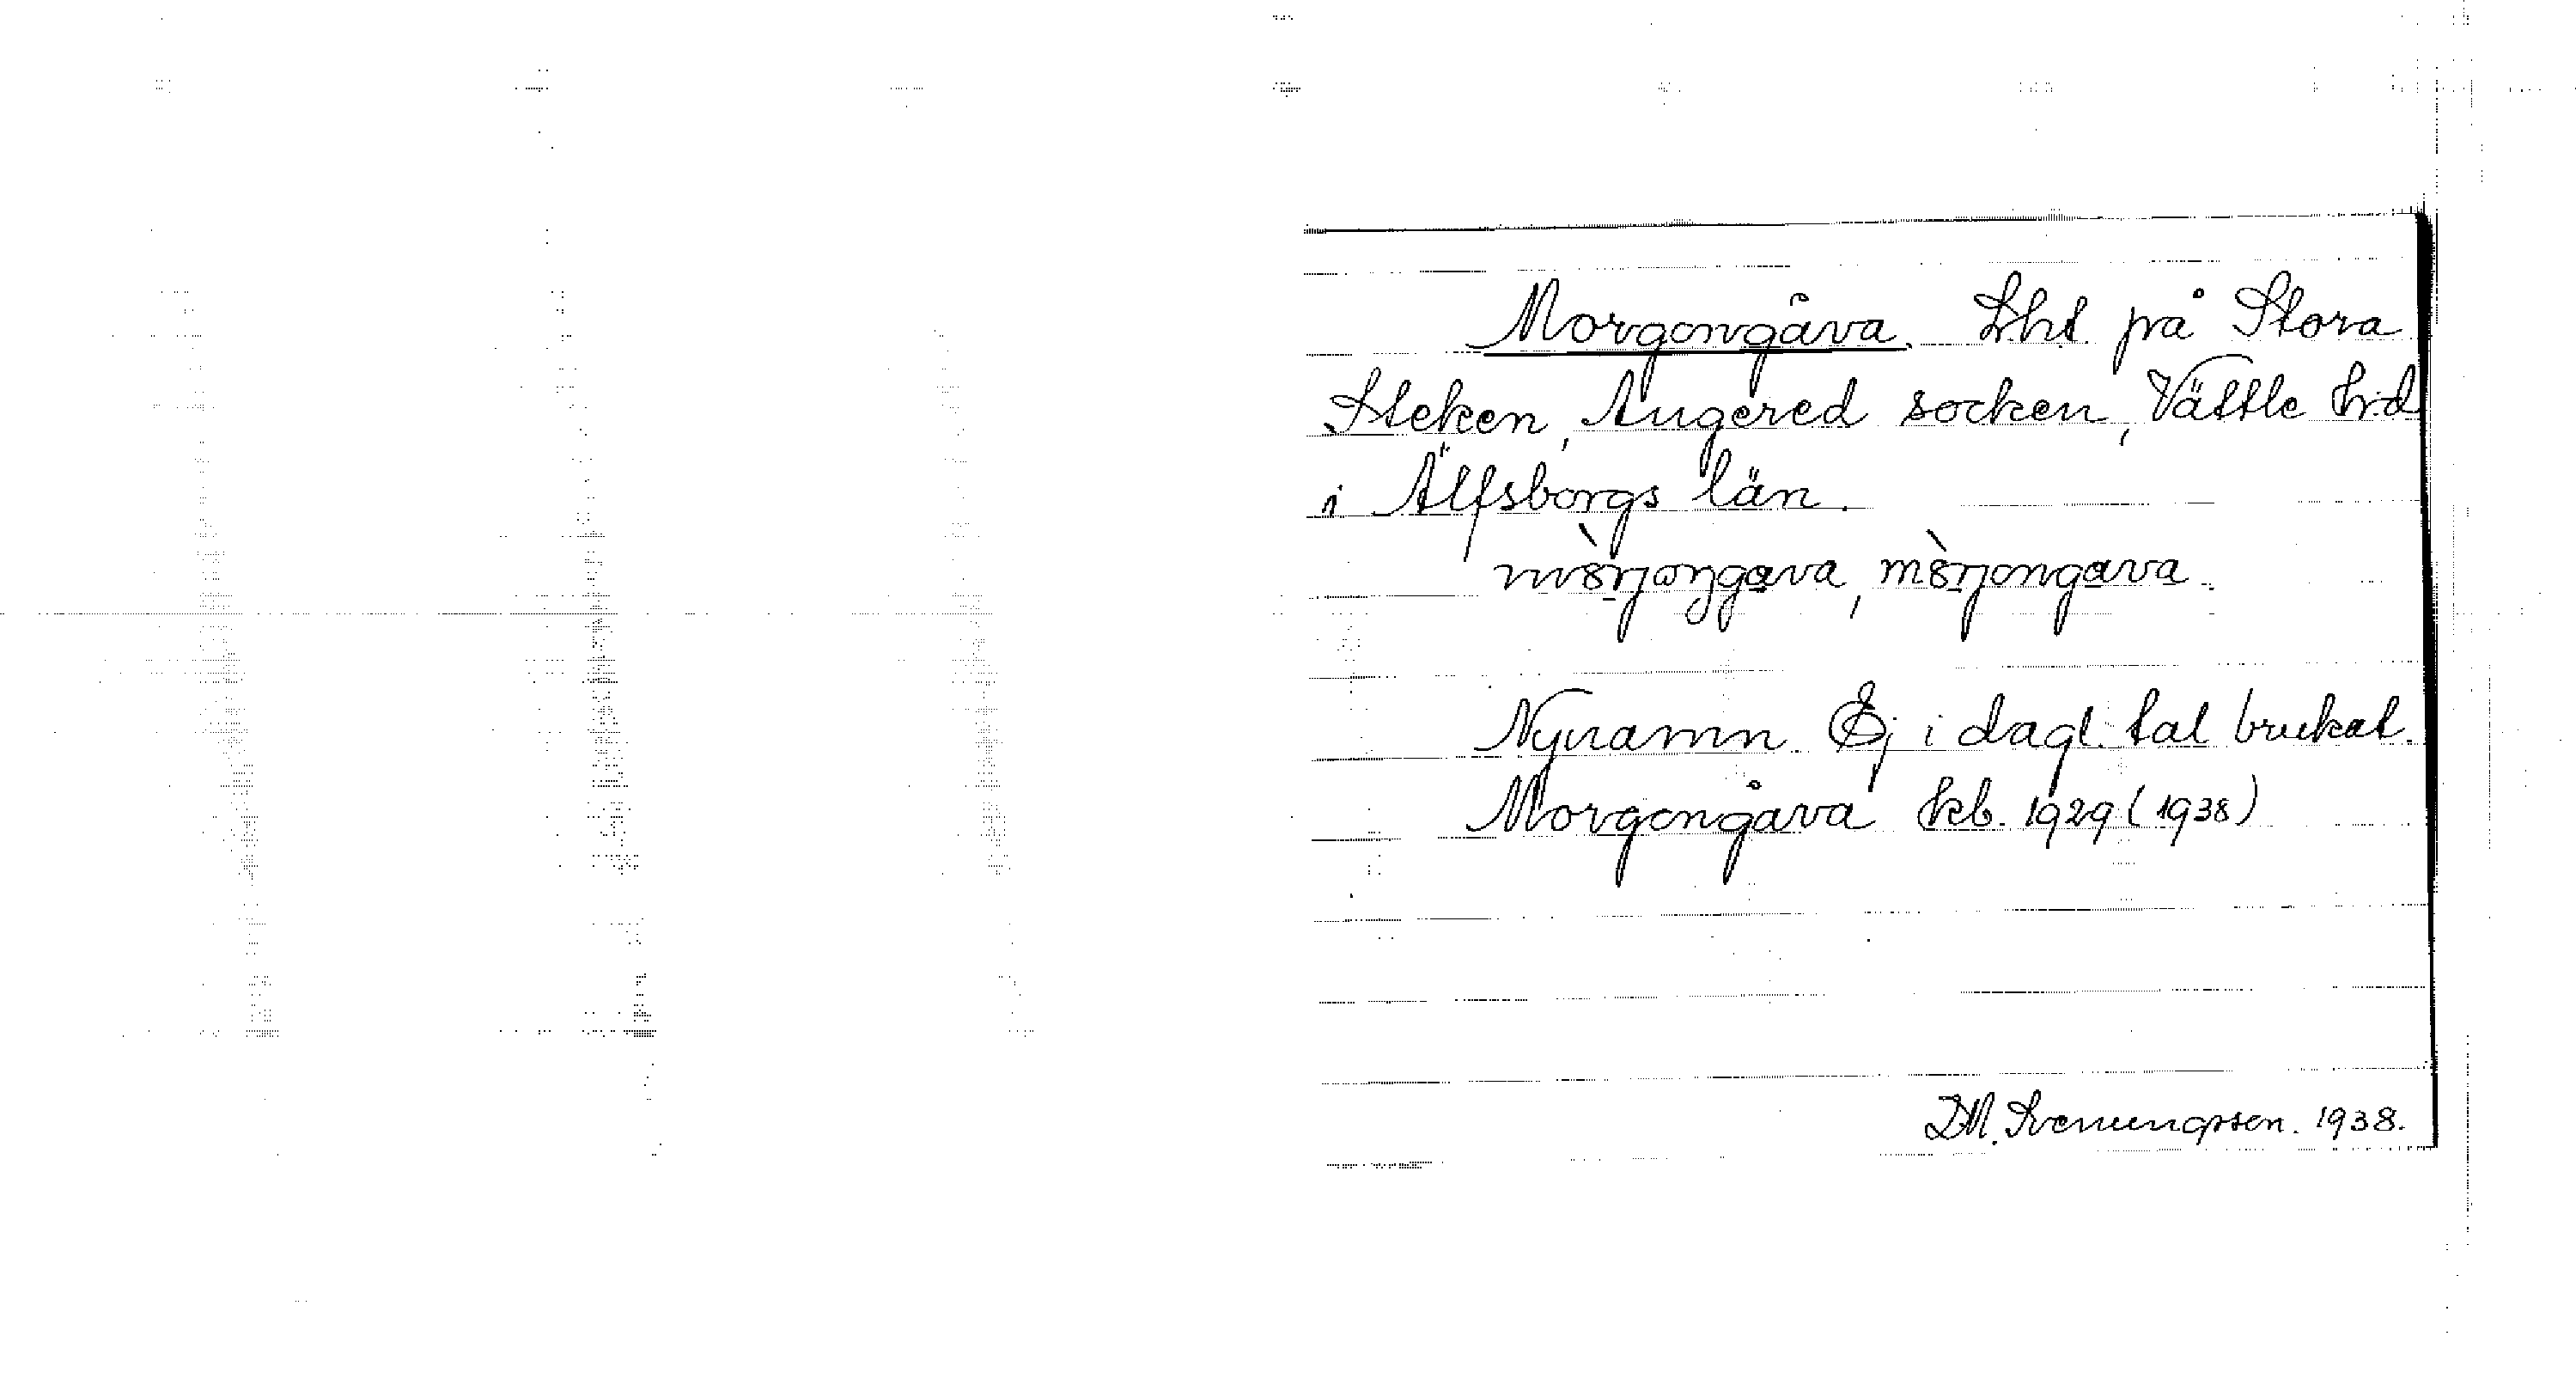 Morgongåva. Lht på Stora
Steken, Angered socken, Vättle hrd
i Älfsborgs län.
Nynamn. Ej i dagl. tal brukat.
Morgongåva kb. 1929 (1938)
D.M. Svenungsson. 1938.